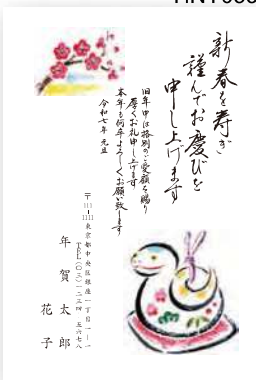 新春を寿ぎ
謹んでお慶びを
申し上げます
旧年中は格別のご愛顧を賜り
厚くお礼申し上げます
本年も何卒よろしくお願い致します
令和七年 元旦
〒111-1111
東京都中央区銀座一丁目一―一
TEL(〇三)一二三四 五六七八
年賀 太郎
花子